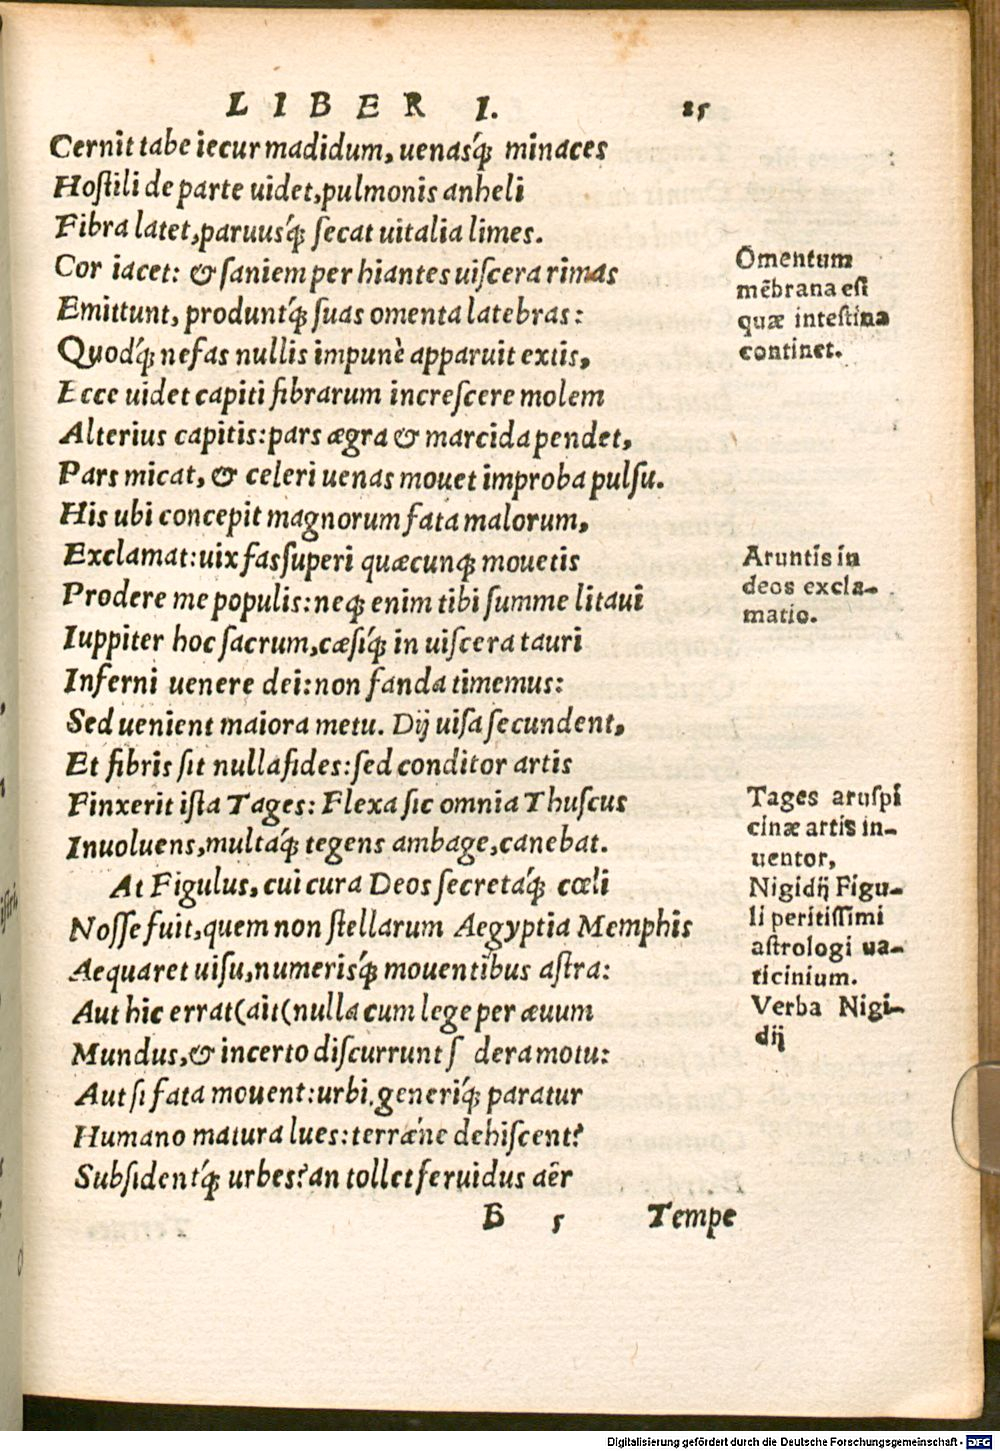 LIBER I. 25
Cernit tabe iecur madidum, uenasq́; minaces
Hoſtili de parte uidet, pulmonis anheli
Fibra latet, paruusq́; ſecat uitalia limes.
Cor iacet: & ſaniem per hiantes uiſcera rimas
Emittunt, produntq́; ſuas omenta latebras:
Quodq́; nefas nullis impunè apparuit extis,
Ecce uidet capiti fibrarum increſcere molem
Alterius capitis: pars ægra & marcida pendet,
Pars micat, & celeri uenas mouet improba pulſu.
His ubi concepit magnorum fata malorum,
Exclamat: uix fas ſuperi quæcunq; mouetis
Prodere me populis: neq; enim tibi ſumme litaui
Iuppiter hoc ſacrum, cæſiq́; in uiſcera tauri
Inferni uenere dei: non fanda timemus:
Sed uenient maiora metu. Dij uiſa ſecundent,
Et fibris ſit nulla fides: ſed conditor artis
Finxerit iſta Tages: Flexa ſic omnia Thuſcus
Inuoluens, multaq́; tegens ambage, canebat.
At Figulus, cui cura Deos ſecretaq́; cœli
Noſſe fuit, quem non ſtellarum Aegyptia Memphis
Aequaret uiſu, numerisq́; mouentibus aſtra:
Aut hic errat (ait( nulla cum lege per æuum
Mundus, & incerto diſcurrunt ſ dera motu:
Aut ſi fata mouent: urbi, generiq́; paratur
Humano matura lues: terrǽne dehiſcent?
Subſidentq́; urbes? an tollet feruidus aër
B 5 Tempe
Omentum
mēbrana eſt
quæ inteſtina
continet.
Aruntis in
deos excla-
matio.
Tages aruſpi
cinæ artis in-
uentor,
Nigidij Figu-
li peritiſſimi
aſtrologi ua-
ticinium.
Verba Nigi-
dij
Digitalisierung gefördert durch die Deutsche Forschungsgemeinschaft - DFG